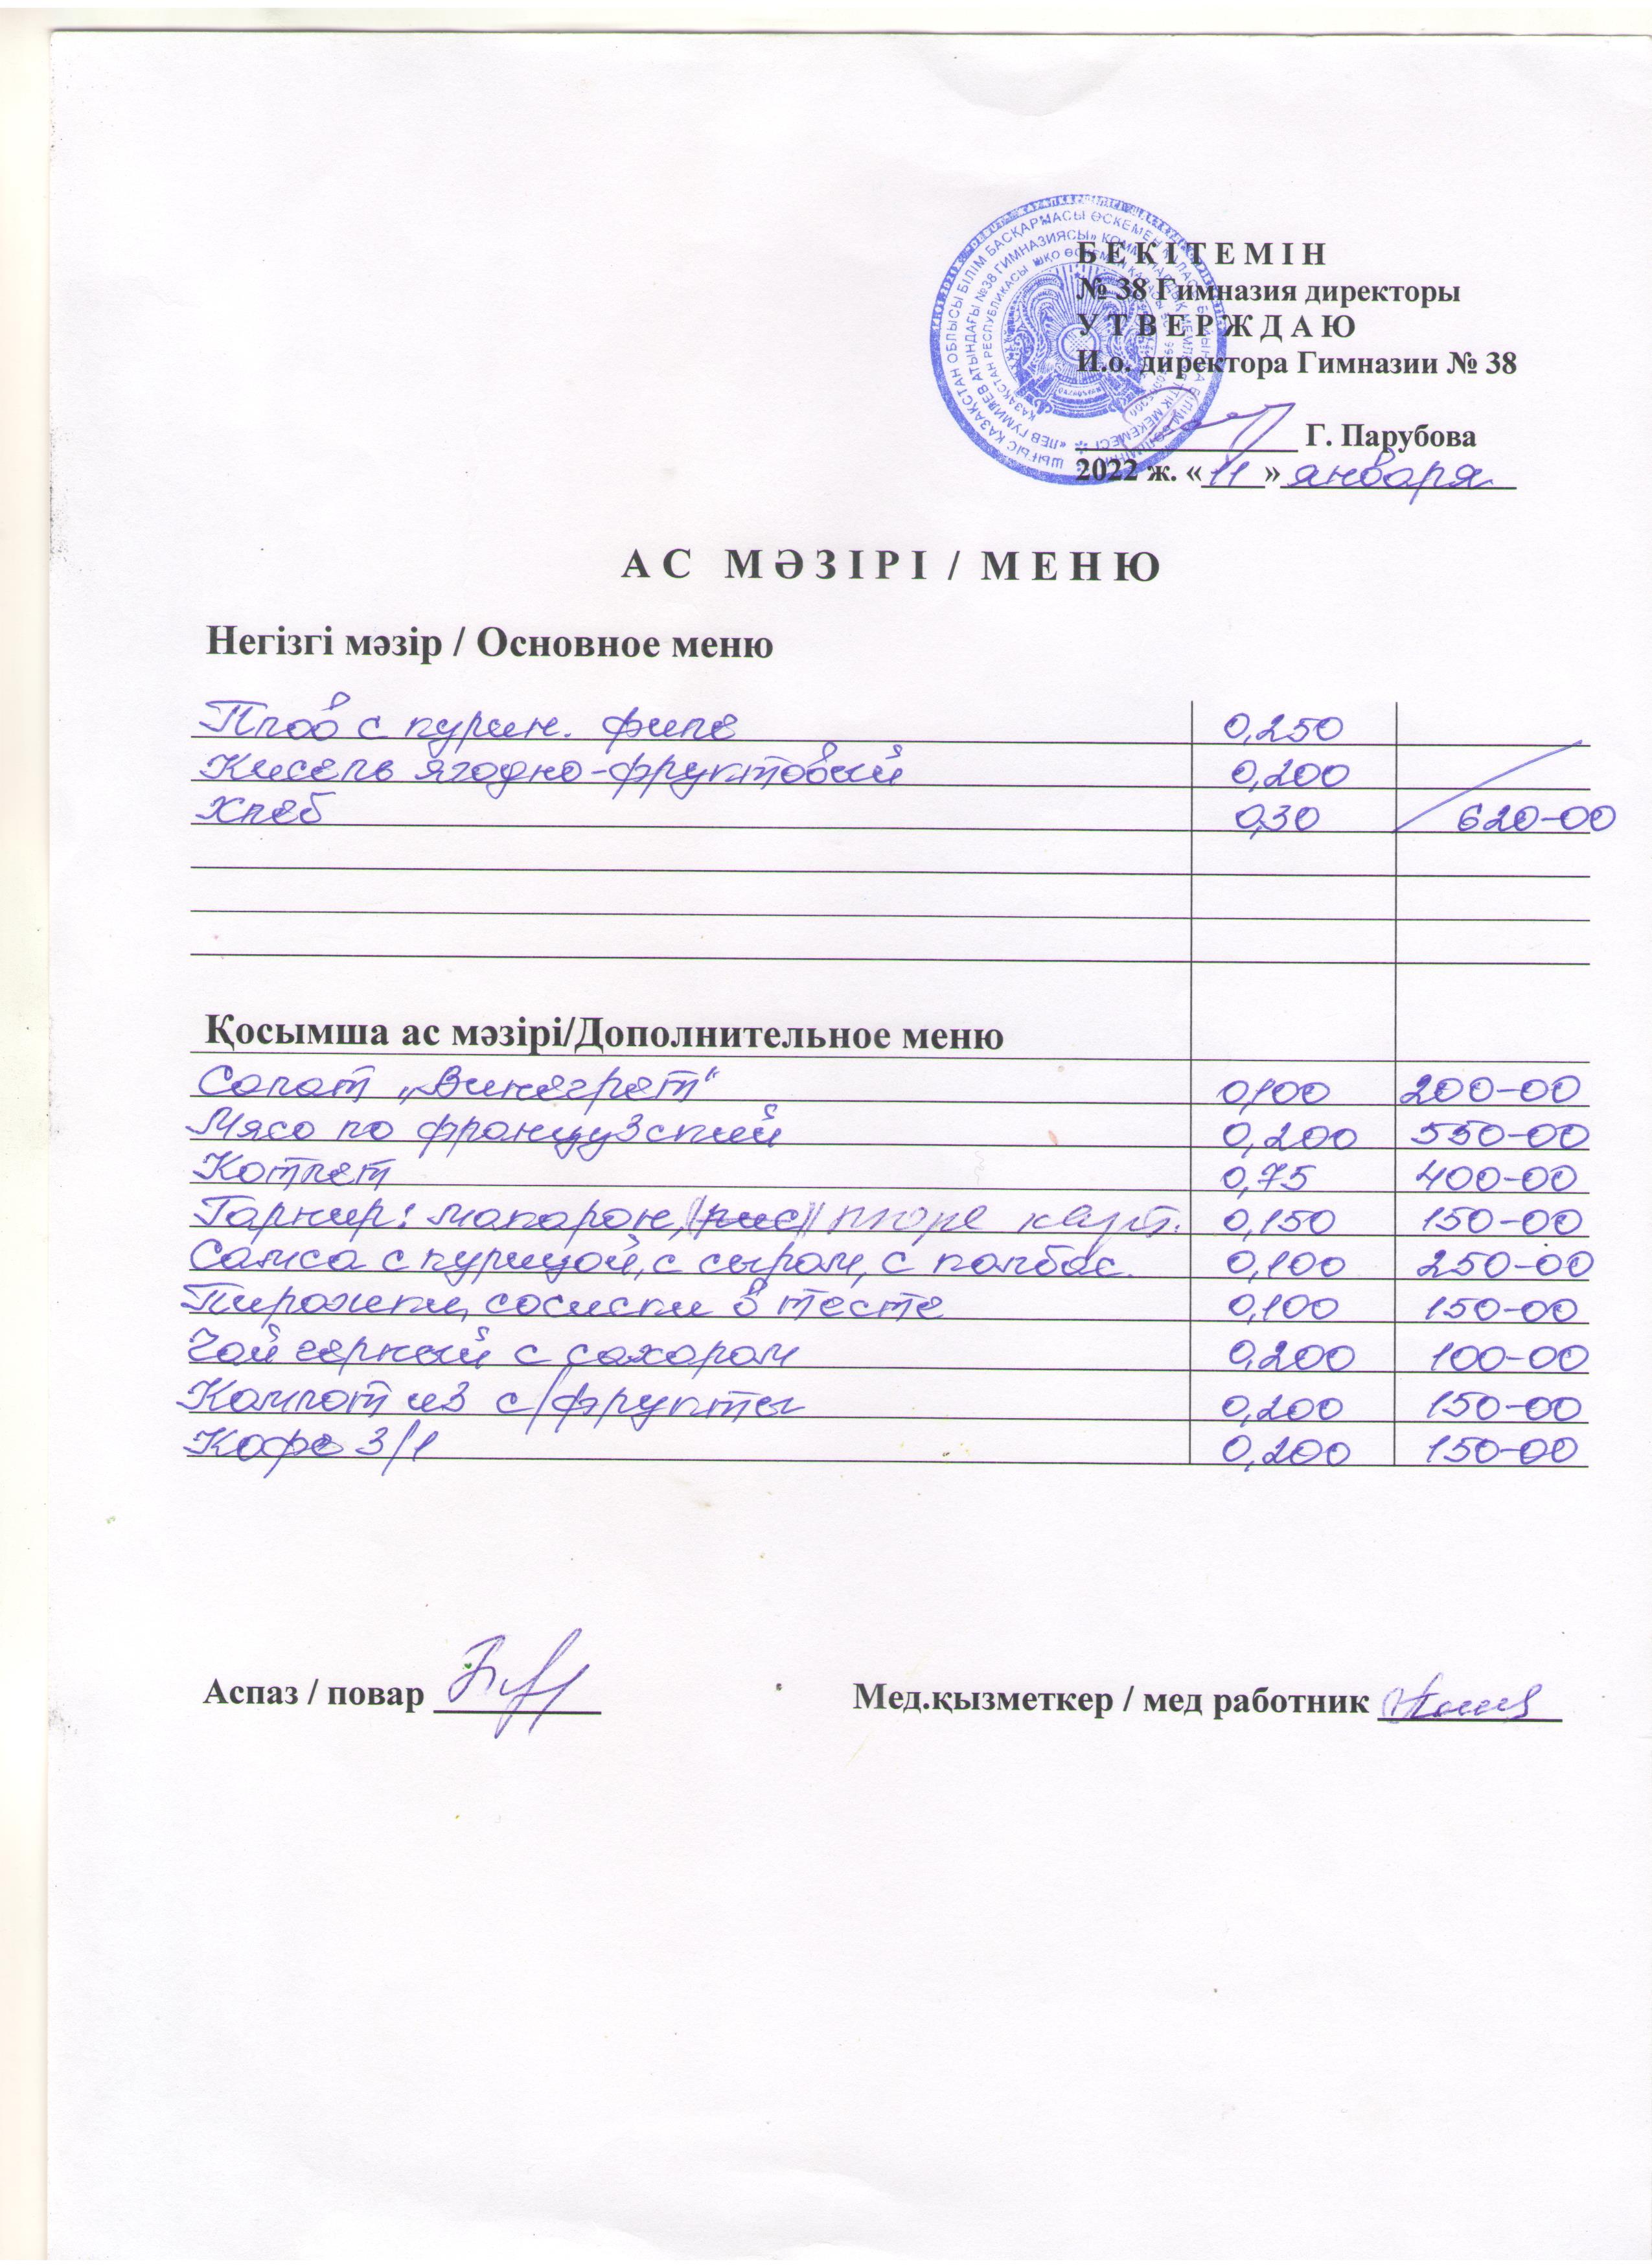 БЕКІТЕМІН
№ 38 Гимназия директоры
УТВЕРЖДАЮ
И.о. директора Гимназии № 38
Г. Парубова
2022 ж. «11» января
АС МӘЗІРІ / МЕНЮ
Негізгі мәзір / Основное меню
Плов с курин. филе 0,250
Кисель ягодно-фруктовый 0,200
Хлеб 0,30 620-00
Қосымша ас мәзірі/Дополнительное меню
Салат „Винегрет“ 0,100 200-00
Мясо по французский 0,200 550-00
Котлет 0,75 400-00
Гарнир: макарон, (рис) пюре карт. 0,150 150-00
Самса с курицой, с сыром, с колбас. 0,100 250-00
Пирожки, сосиски в тесте 0,100 150-00
Чай черный с сахаром 0,200 100-00
Компот из с/фрукты 0,200 150-00
Кофе 3/1 0,200 150-00
Аспаз / повар Мед.қызметкер / мед работник